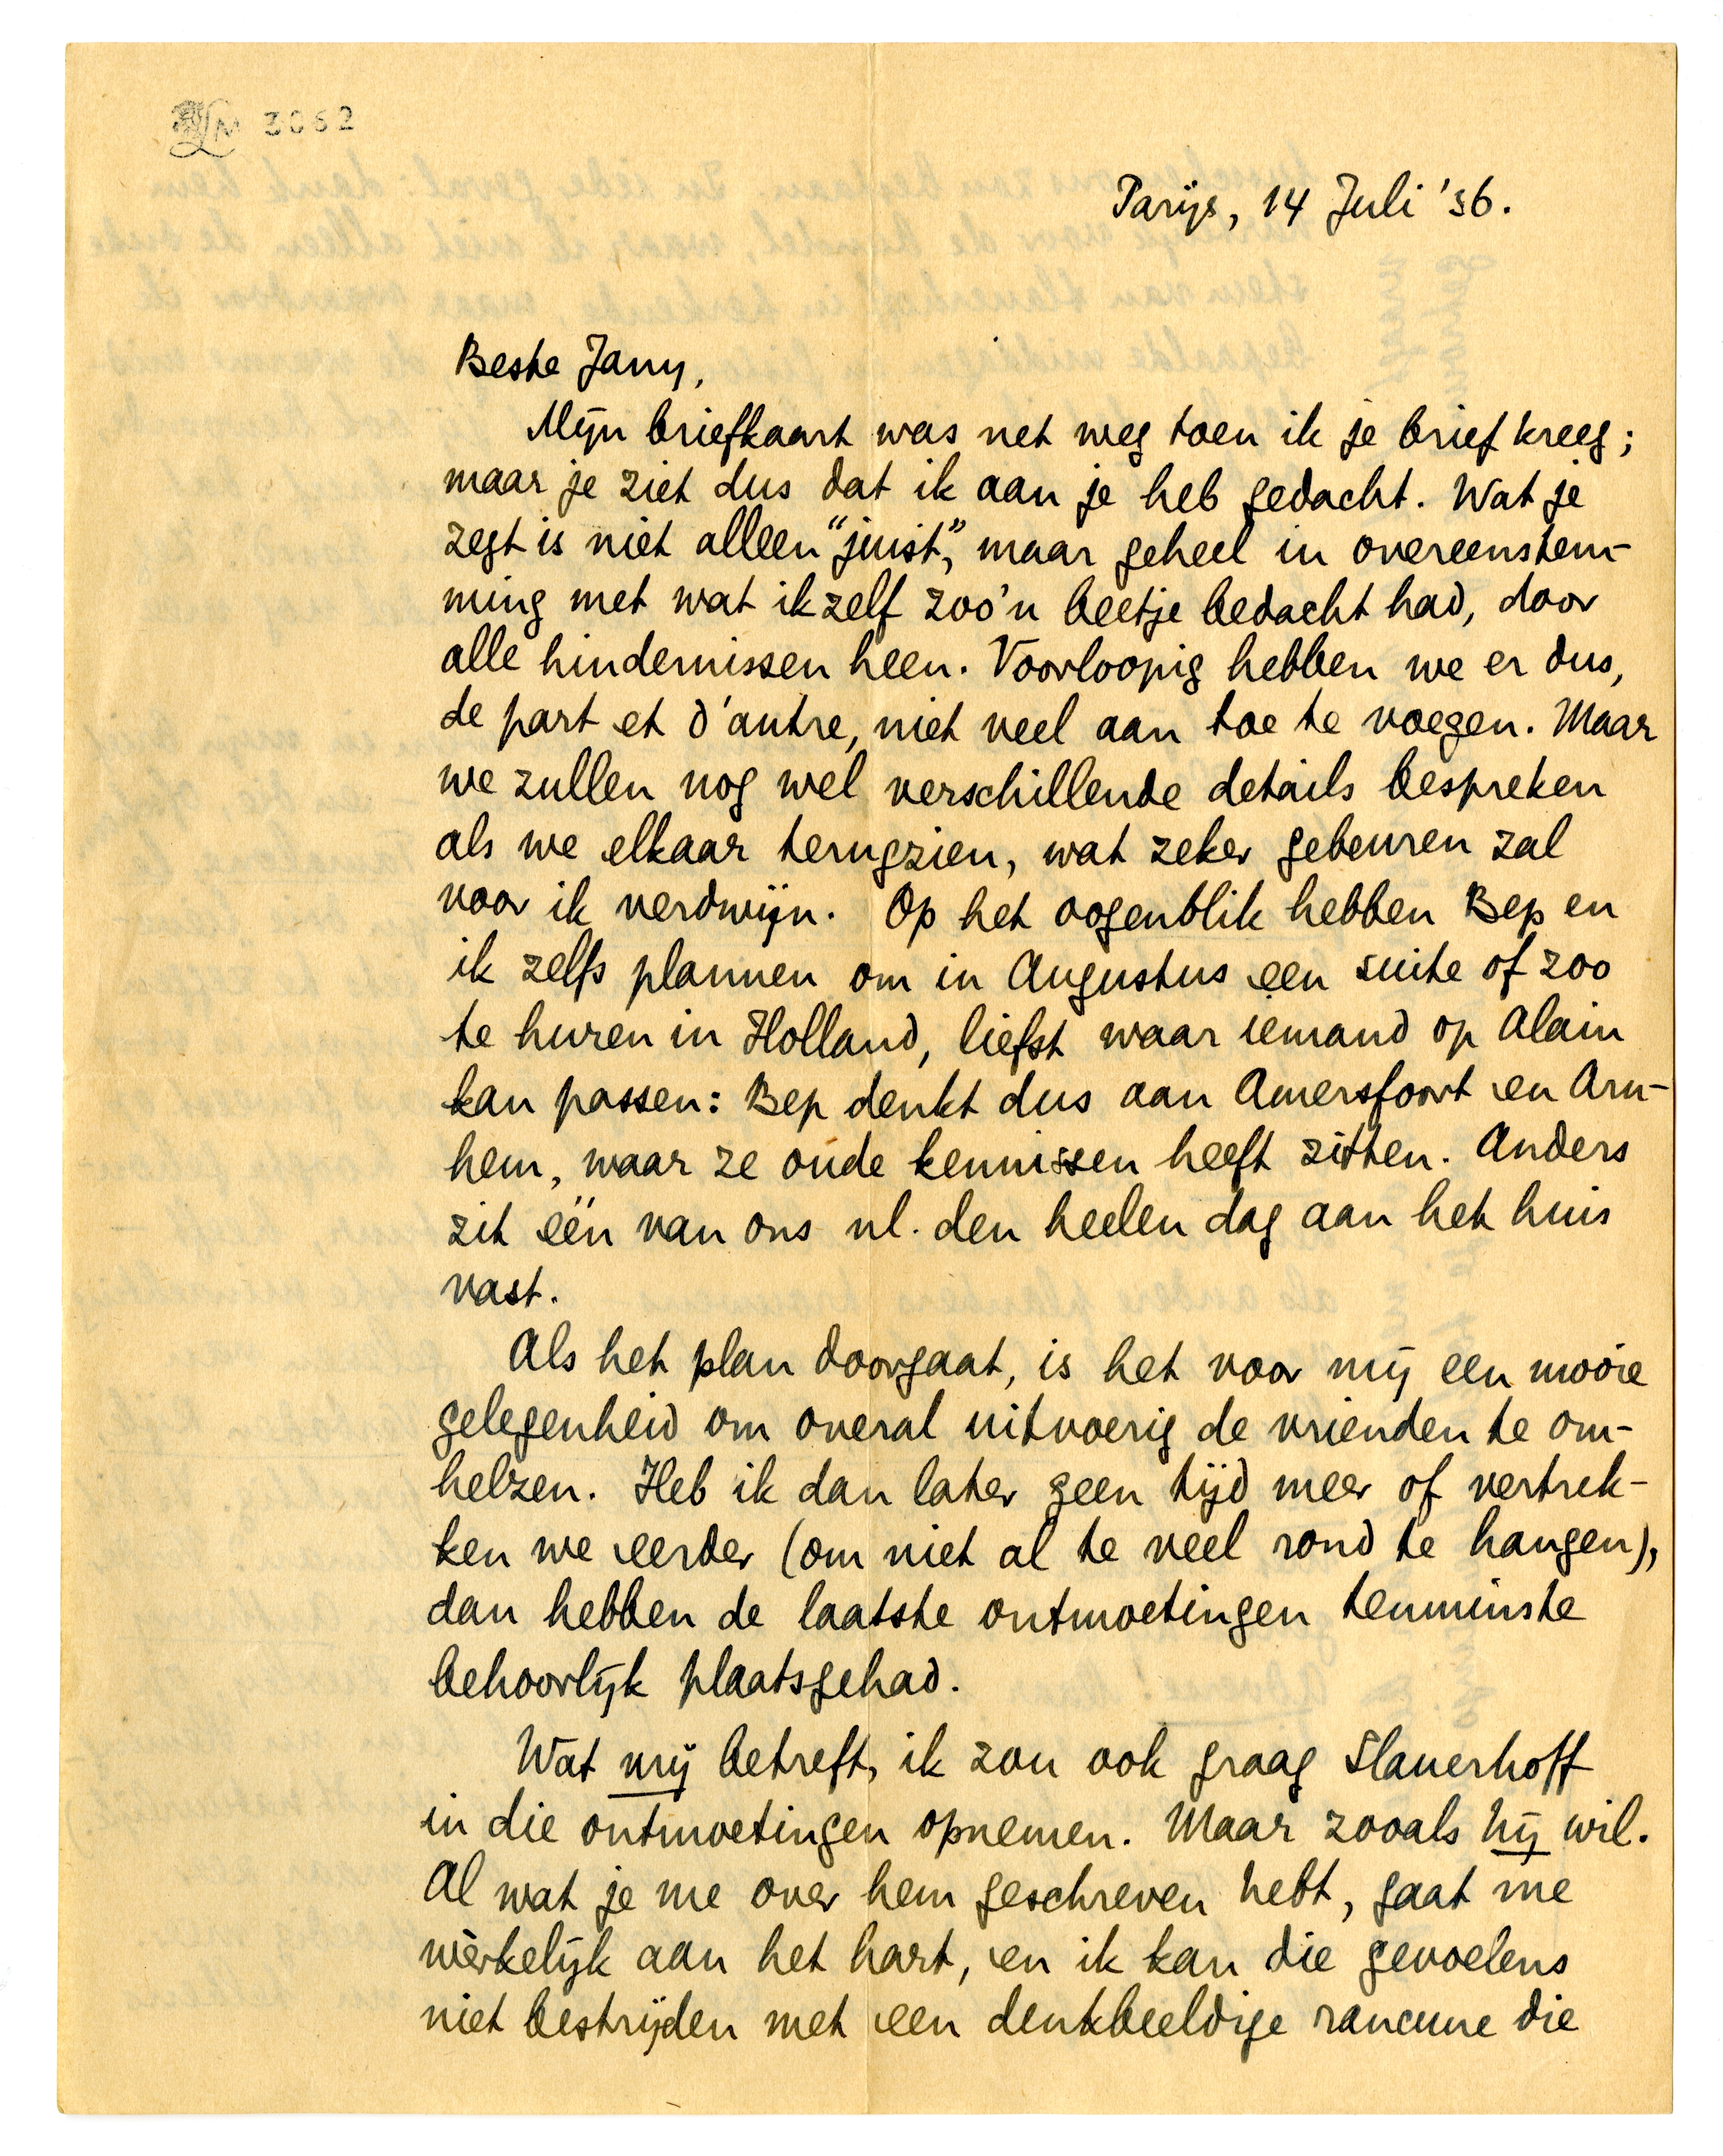 LM 3062
Parijs, 14 Juli '36.
Beste Jany,
Mijn briefkaart was net weg toen ik je brief kreeg;
maar je ziet dus dat ik aan je heb gedacht. Wat je
zegt is niet alleen “juist”, maar geheel in overeenstem-
ming met wat ikzelf zoo'n beetje bedacht had, door
alle hindernissen heen. Voorloopig hebben we er dus,
de part et d'autre, niet veel aan toe te voegen. Maar
we zullen nog wel verschillende details bespreken
als we elkaar terugzien, wat zeker gebeuren zal
voor ik verdwijn. Op het oogenblik hebben Bep en
ik zelfs plannen om in Augustus een suite of zoo
te huren in Holland, liefst waar iemand op Alain
kan passen: Bep denkt dus aan Amersfoort en Arn-
hem, waar ze oude kennissen heeft zitten. Anders
zit één van ons nl. den heelen dag aan het huis
vast.
Als het plan doorgaat, is het voor mij een mooie
gelegenheid om overal uitvoerig de vrienden te om-
helzen. Heb ik dan later geen tijd meer of vertrek-
ken we eerder (om niet al te veel rond te hangen),
dan hebben de laatste ontmoetingen tenminste
behoorlijk plaatsgehad.
Wat mij betreft, ik zou ook graag Slauerhoff
in die ontmoetingen opnemen. Maar zooals hij wil.
Al wat je me over hem geschreven hebt, gaat me
wèrkelijk aan het hart, en ik kan die gevoelens
niet bestrijden met een denkbeeldige rancune die